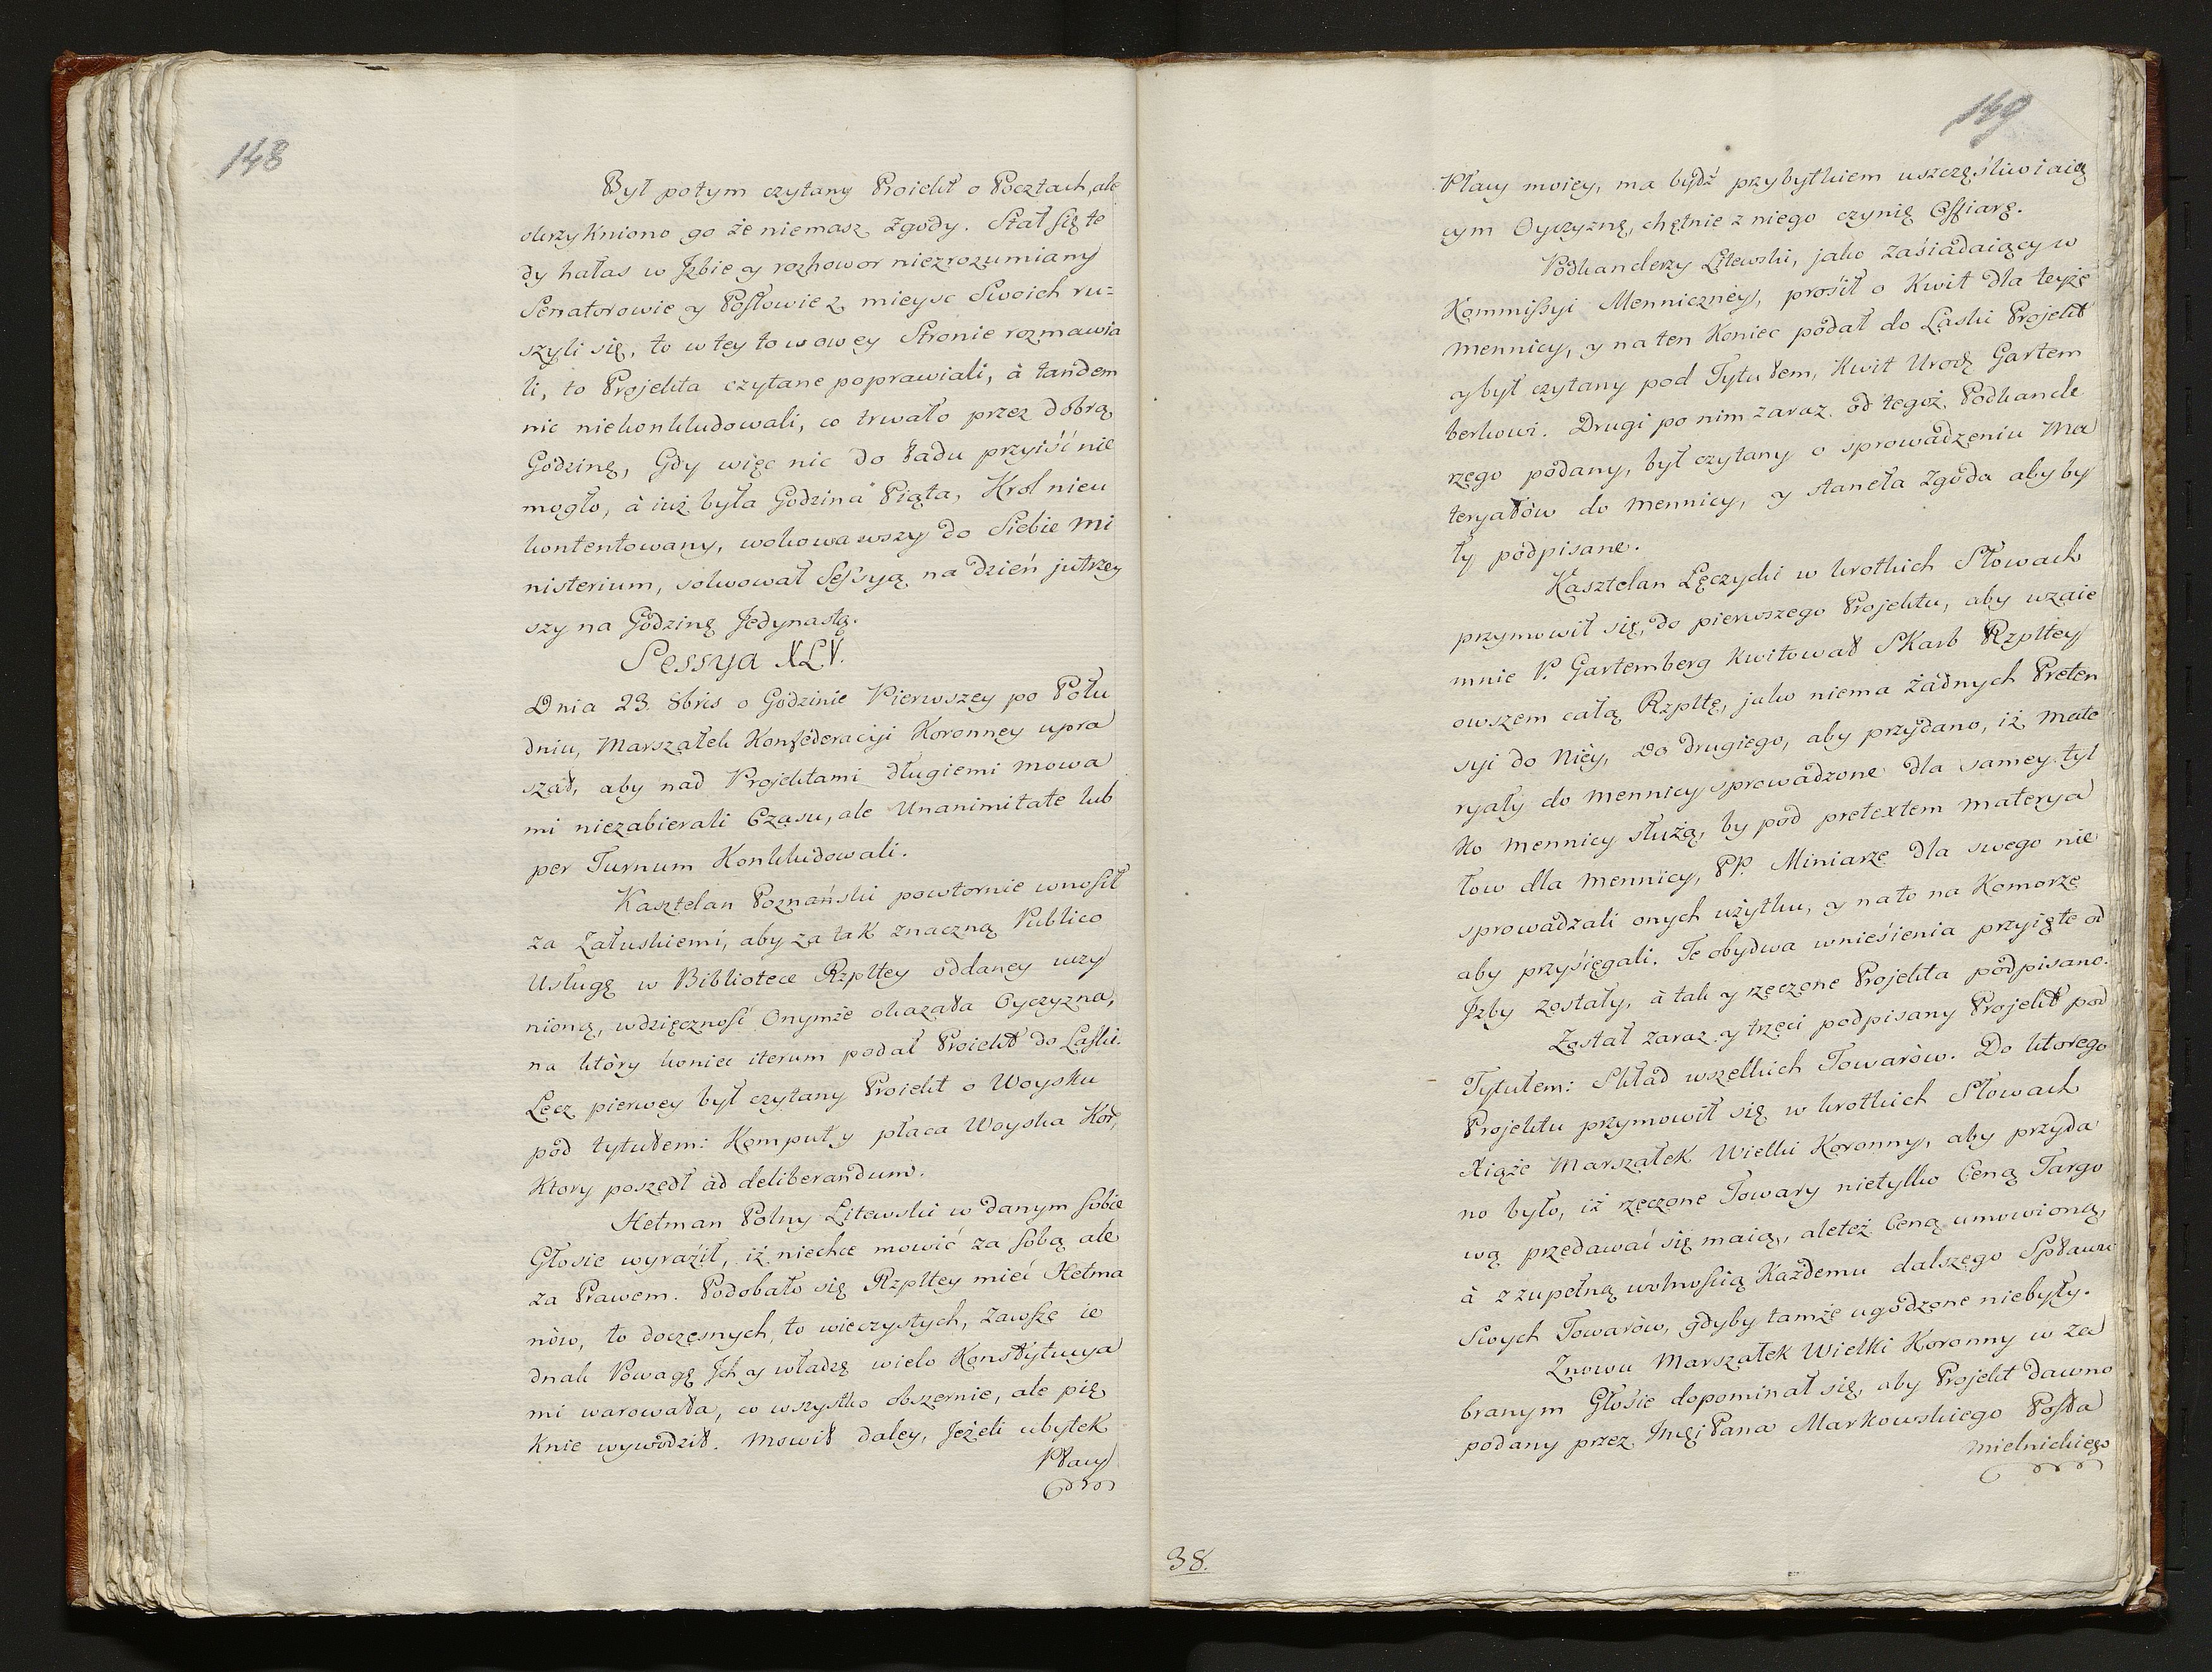 148
Był potym czytany Proiekt o Pocztach, ale
okrzykniono go że niemasz zgody. Stał się te
dy hałas w Jzbie y rozhowor niezrozumiany
Senatorowie y Posłowie z mieysc Swoich ru=
szyli się, to w tey to w owey Stronie rozmawia
li, to Projekta czytane poprawiali, à tandem
nic niekonkludowali, co trwało przez dobrą
Godzinę, Gdy więc nic do ładu przyiść nie
mogło, à iuż była Godzina Piąta, Krol nieu
kontentowany, wokowawszy do Siebie Mi
nisterium, solwował Sessyą na dzień jutrzey
szy na Godzinę Jedynastą.
Sessya XLV.
Dnia 23. 8bris o Godzinie Pierwszey po Połu
dniu, Marszałek Konfederacyi Koronney upra
szał, aby nad Projektami długiemi mowa
mi niezabierali Czasu, ale Unanimitate lub
per Turnum Konkludowali.
Kasztelan Poznański powtornie wnosił
za Załuskiemi, aby za tak znaczną Publico
Usługę w Bibliotece Rzpltey oddaney uczy
nioną, wdzięcznosć Onymże okazała Oyczyzna,
na który koniec iterum podał Proiekt do Laski.
Lecz pierwey był czytany Proiekt o Woysku
pod tytułem: Komput y płaca Woyska Kor,
Ktory poszedł ad deliberandum.
Hetman Polny Litewski w danym sobie
Głosie wyraził, iż niechce mowić za sobą ale
za Prawem. Podobało się Rzpltey mieć Hetma
nów, to doczesnych, to wieczystych, zawsze ie
dnak Powagę Jch y władzę wielo Konstytucya
mi warowała, co wszystko obszernie, ale pię
Knie wywodził. Mowił daley, Jeżeli ubytek
Płacy
149
Płacy moiey, ma bydź przybytkiem uszczęśliwiaią
cym Oyczyznę, chętnie z niego czynię Offiarę.
Podkanclerzy Litewski, jako zasiadaiący w
Kommissyi Menniczney, prosił o Kwit dla teyże
Mennicy, y na ten Koniec podał do Laski Projekt
y był czytany pod Tytułem, Kwit Urodz Gartem
berkowi. Drugi po nim zaraz od tegoż Podkancle
rzego podany, był czytany o sprowadzeniu Ma
teryałów do Mennicy, y staneła zgoda aby by
ły podpisane.
Kasztelan Łęczycki w krotkich Słowach
przymowił się, do pierwszego Projektu, aby wzaie
mnie P. Gartemberg Kwitował Skarb Rzpltey
owszem całą Rzpltę, jako niema żadnych Preten
syi do Niey, Do drugiego, aby przydano, iż Mate
ryały do Mennicy sprowadzone dla samey tyl
ko Mennicy służą, by pod pretextem Materya
łow dla Mennicy, PP. Miniarze dla swego nie
sprowadzali onych użytku, y na to na Komorze
aby przysięgali. Te obydwa wniesienia przyięte od
Jzby zostały, à tak y rzeczone Projekta podpisano.
Został zaraz y trzeci podpisany Projekt pod
Tytułem: Skład wszelkich Towarów. Do ktorego
Projektu przymowił się w krotkich Słowach
Xiąże Marszałek Wielki Koronny, aby przyda
no było, iż rzeczone Towary nietylko Ceną Targo
wą przedawać się maią, ale też Ceną umowioną,
à z zupełną wolnością Każdemu dalszego Spławu
Swych Towarów, gdyby tamże ugodzone niebyły.
Znowu Marszałek Wielki Koronny w za
branym Głosie dopominał się, aby Projekt dawno
podany przez Pana Markowskiego Posła
Mielnickiego
38.